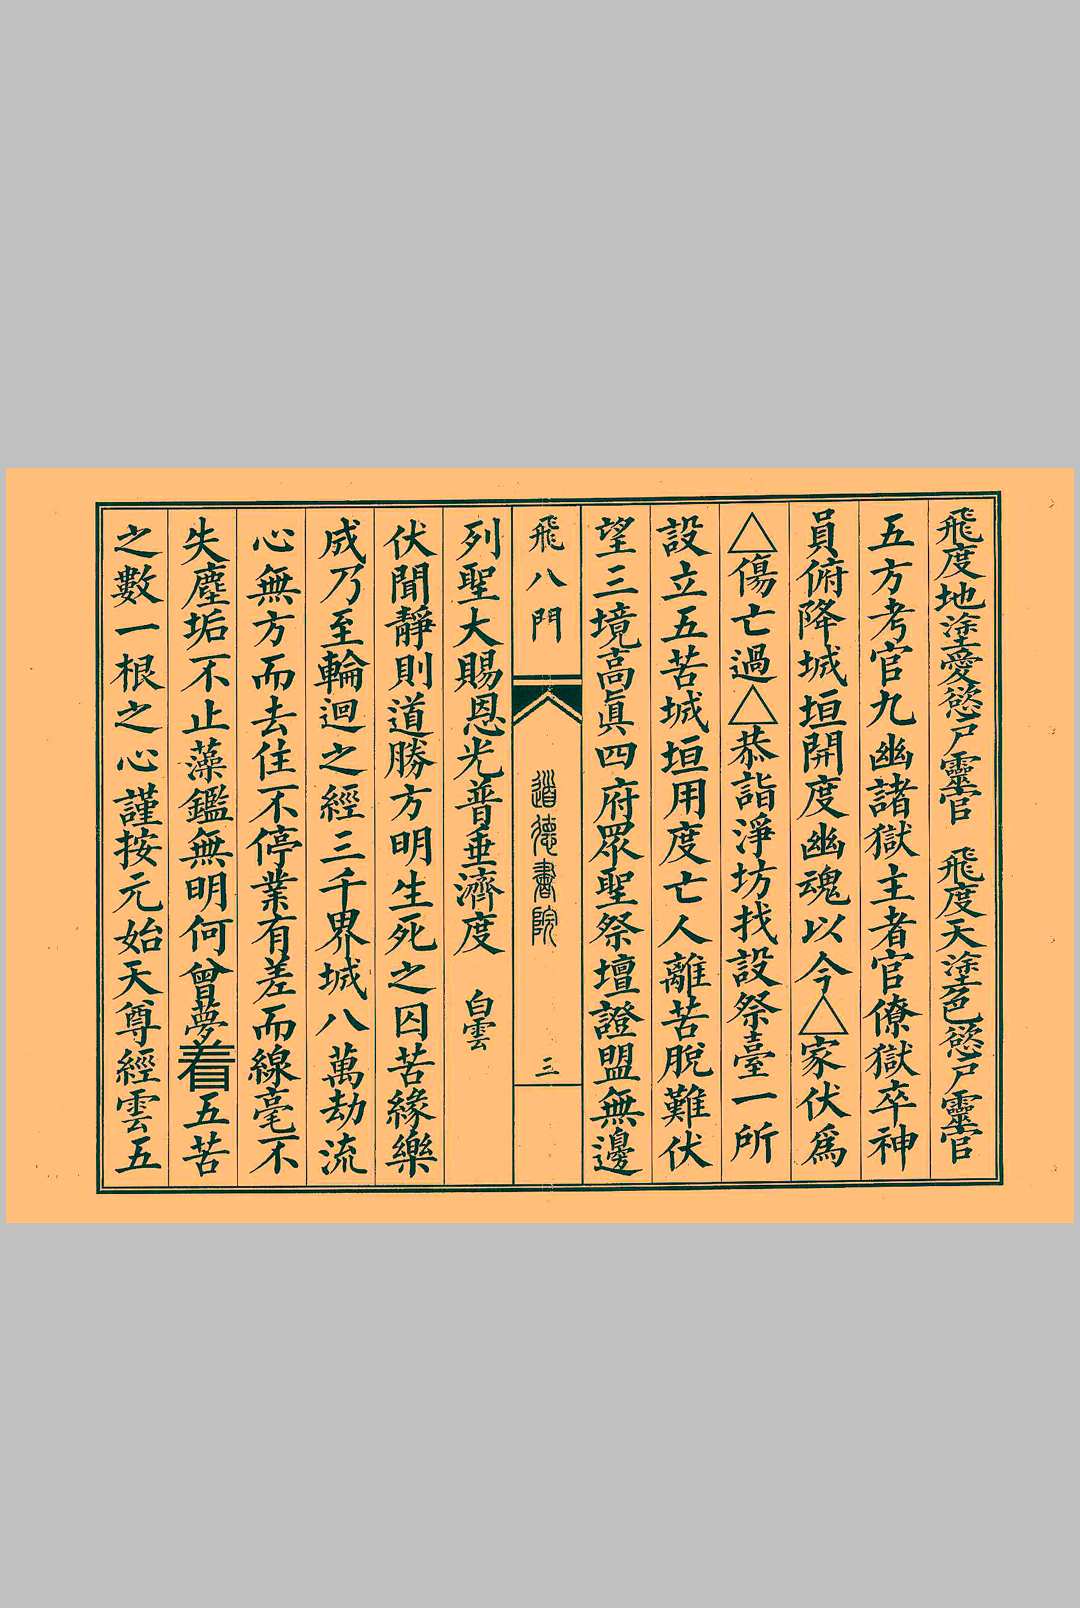 飛度地塗愛慾尸靈官　飛度天塗色慾尸靈官
五方考官九幽諸獄主者官僚獄卒神
員俯降城垣開度幽魂以今△家伏爲
△傷亡過△恭詣淨坊找設祭臺一所
設立五苦城垣用度亡人離苦脫難伏
望三境高眞四府眾聖祭壇證盟無邊
飛八門　道德書院　三
列聖大賜恩光普垂濟度　白雲
伏聞靜則道勝方明生死之囚苦緣樂
成乃至輪迴之經三千界城八萬劫流
心無方而去住不停業有差而線毫不
失塵垢不止藻鑑無明何曾夢着五苦
之數一根之心謹按元始天尊經雲五